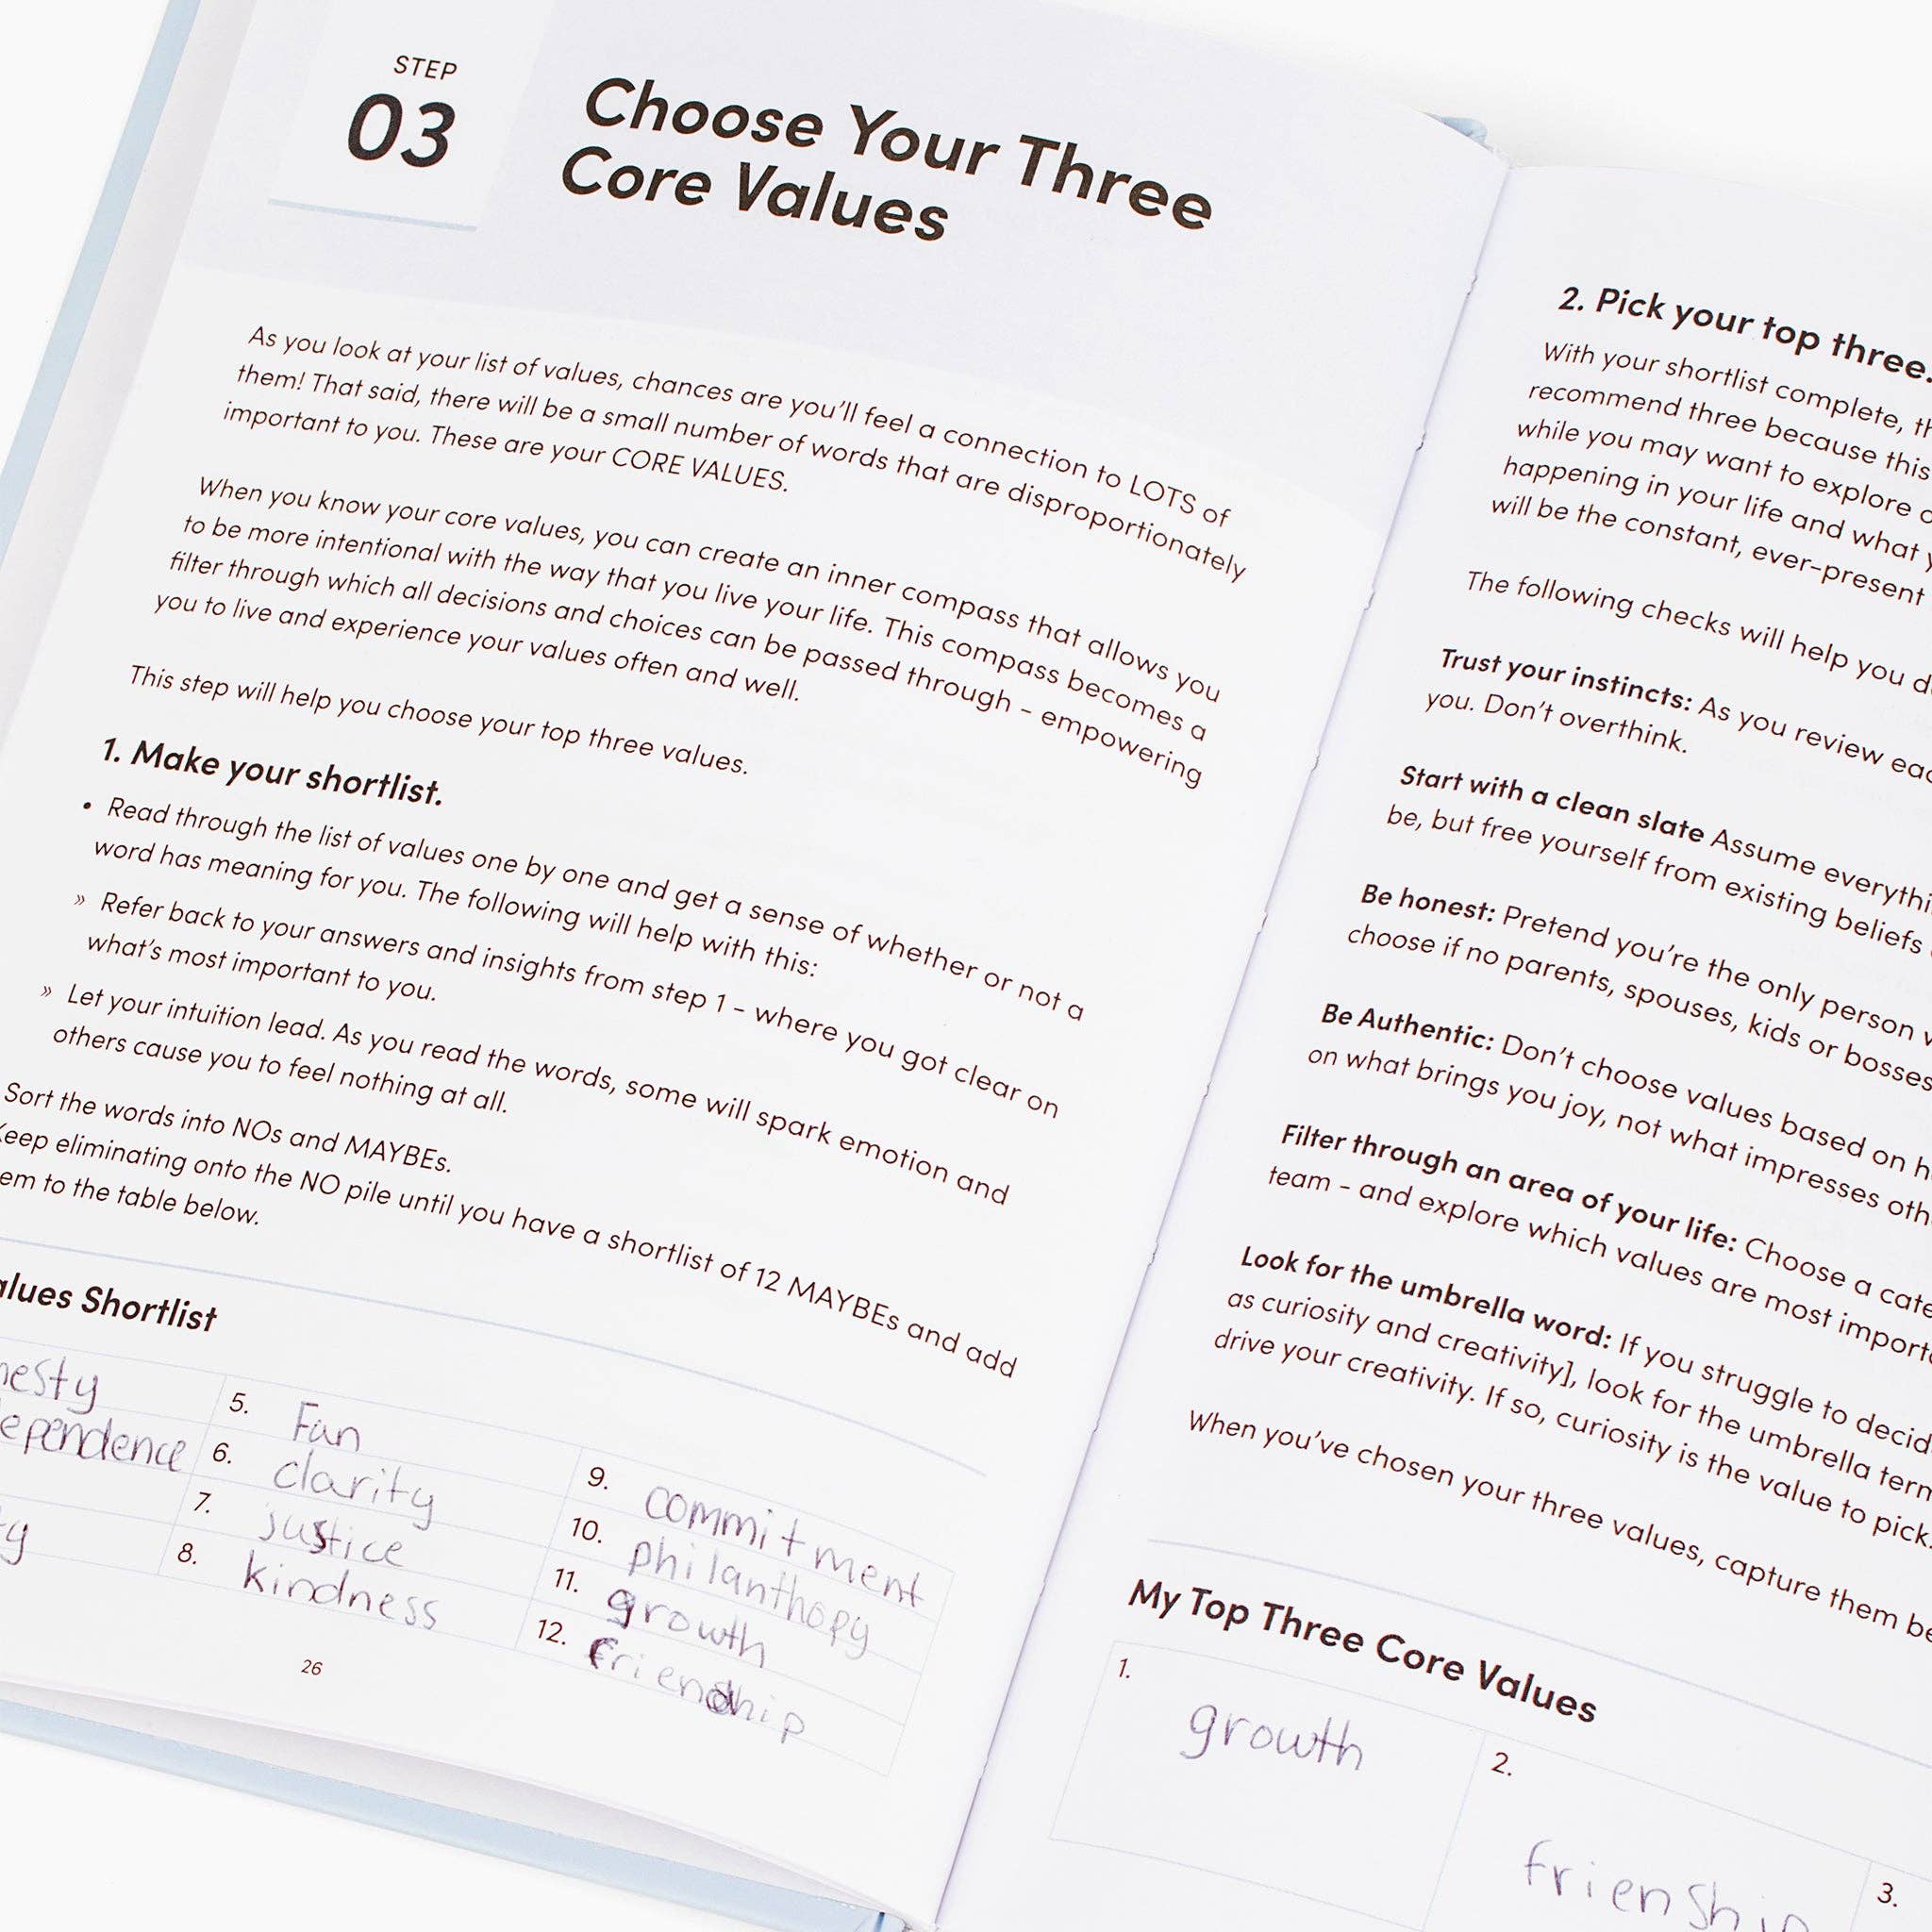 STEP
03
Choose Your Three
Core Values
As you look at your list of values, chances are you'll feel a connection to LOTS of
them! That said, there will be a small number of words that are disproportionately
important to you. These are your CORE VALUES.
When you know your core values, you can create an inner compass that allows you
to be more intentional with the way that you live your life. This compass becomes a
filter through which all decisions and choices can be passed through - empowering
you to live and experience your values often and well.
This step will help you choose your top three values.
1. Make your shortlist.
• Read through the list of values one by one and get a sense of whether or not a
word has meaning for you. The following will help with this:
» Refer back to your answers and insights from step 1 - where you got clear on
what's most important to you.
» Let your intuition lead. As you read the words, some will spark emotion and
others cause you to feel nothing at all.
Sort the words into NOs and MAYBEs.
eep eliminating onto the NO pile until you have a shortlist of 12 MAYBEs and add
em to the table below.
alues Shortlist
nesty
ependence
ty
5. Fun
6. clarity
7. justice
8. kindness
9. commitment
10. philanthopy
11. growth
12. friendship
26
2. Pick your top three.
With your shortlist complete, th
recommend three because this
while you may want to explore o
happening in your life and what y
will be the constant, ever-present
The following checks will help you d
Trust your instincts: As you review eac
you. Don't overthink.
Start with a clean slate Assume everythi
be, but free yourself from existing beliefs
Be honest: Pretend you're the only person w
choose if no parents, spouses, kids or bosses
Be Authentic: Don't choose values based on h
on what brings you joy, not what impresses oth
Filter through an area of your life: Choose a cate
team - and explore which values are most importa
Look for the umbrella word: If you struggle to decid
as curiosity and creativity], look for the umbrella term
drive your creativity. If so, curiosity is the value to pick.
When you've chosen your three values, capture them be
My Top Three Core Values
1. growth
2. frienship
3.